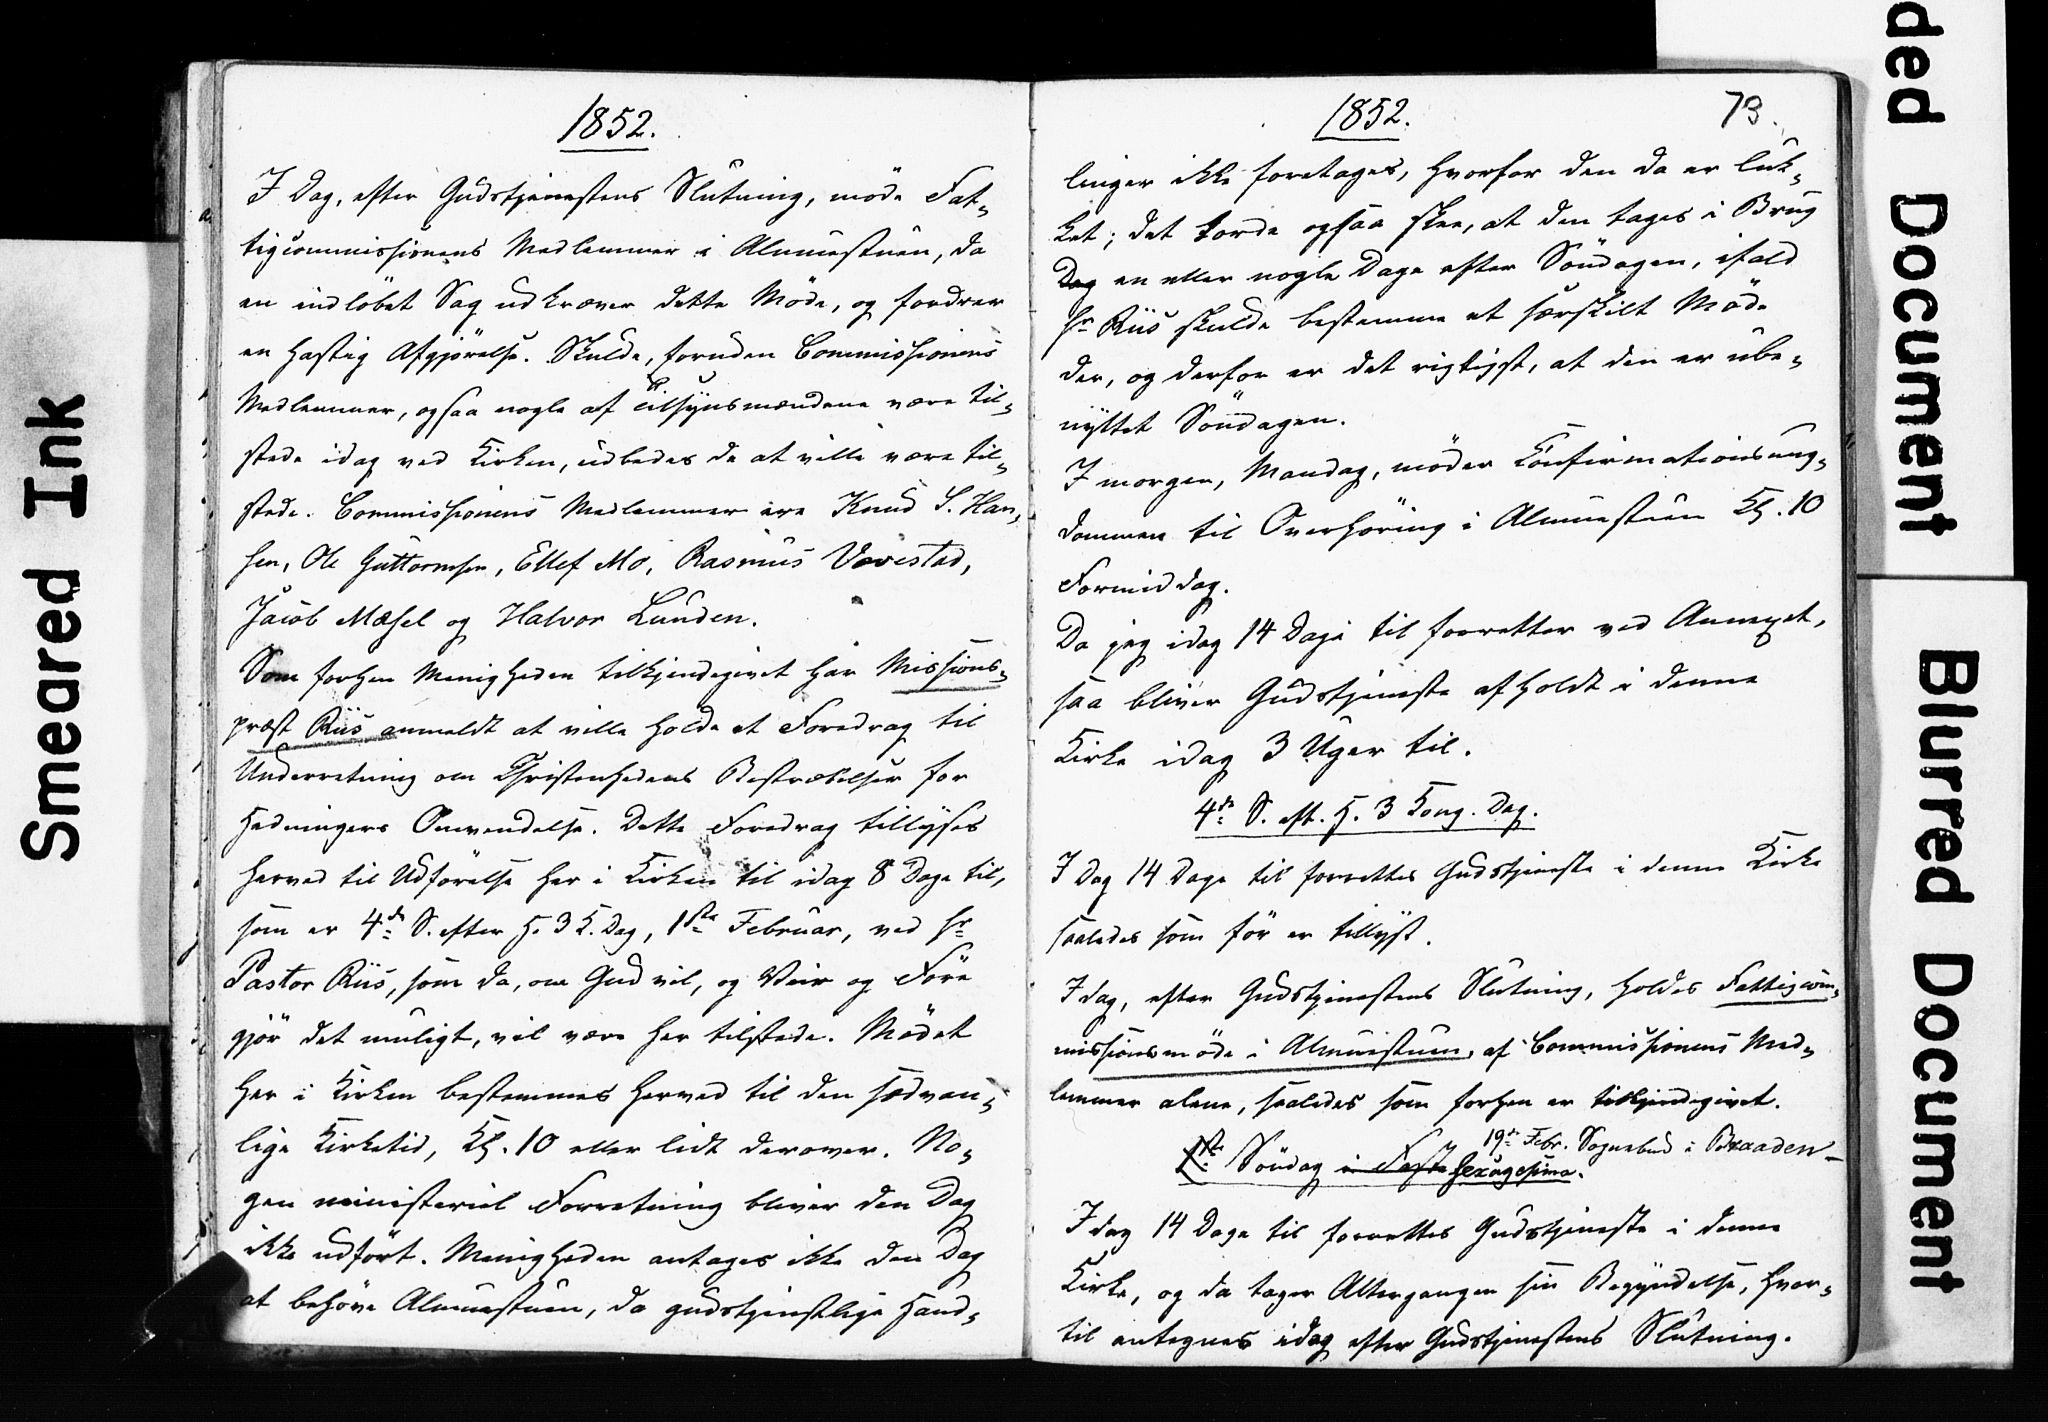 1852.
I Dag, efter Gudstjenestens Slutning, möde Fat-
tigcommissionens Medlemmer i Almuestuen, da
en indlöbet Sag udkræver dette Möde, og fordrer
en hastig Afgjörelse. Skulde, foruden Commissionens
Medlemmer, ogsaa nogle af Tilsynsmændene være til-
stede idag ved Kirken, udbedes de at ville være til-
stede. Commissionens Medlemmer ere Knud S. Han-
sen, Ole Guttormsen, Ellef Mo, Rasmus Vovestad,
Jacob Mæsel og Halvor Lunden.
Som forhen Menigheden tilkjendegivet har Missions-
præst Riis anmeldt at ville holde et Foredrag til
Underretning om Christenhedens Bestræbelser for
Hedningers Omvendelse. Dette Foredrag tillyses
herved til Udförelse her i Kirken til idag 8 Dage til,
som er 4de S. efter H. 3 K. Dag, 1ste Februar, ved Hr
Pastor Riis, som da, om Gud vil, og Veir og Före
gjör det muligt, vil være her tilstede. Mödet
her i Kirken bestemmes herved til den sædvan-
lige Kirketid, Kl. 10 eller lidt derover. No-
gen ministeriel Forretning bliver den Dag
ikke udfört. Menigheden antages ikke den Dag
at behöve Almuestuen, da gudstjenstlige Hand-
1852.
73.
linger ikke foretages, hvorfor den da er luk-
ket; det torde ogsaa skee, at den tages i Brug
Dag en eller nogle Dage efter Söndagen, ifald
Hr Riis skulde bestemme et særskilt Möde
der, og derfor er det rigtigst, at den er ube-
nyttet Söndagen.
I morgen, Mandag, möder Confirmationsung-
dommen til Overhöring i Almuestuen Kl. 10
Formiddag.
Da jeg idag 14 Dage til forretter ved Annexet,
saa bliver Gudstjeneste afholdt i denne
Kirke idag 3 Uger til.
4de S. eft. H. 3 Kong. Dag.
I Dag 14 Dage til forrettes Gudstjeneste i denne Kirke
saaledes som för er tillyst.
Idag, efter Gudstjenestens Slutning, holdes Fattigcom-
missionsmöde i Almuestuen, af Commissionens Med-
lemmer alene, saaledes som forhen er tilkjendegivet.
19de Febr. Sognebud i Braaden-
1ste Söndag i Faste Sexagesima.
Idag 14 Dage til forrettes Gudstjeneste i denne
Kirke, og da tager Altergangen sin Begyndelse, hvor-
til antegnes idag efter Gudstjenestens Slutning.
Smeared Ink
ded Document
Blurred Document